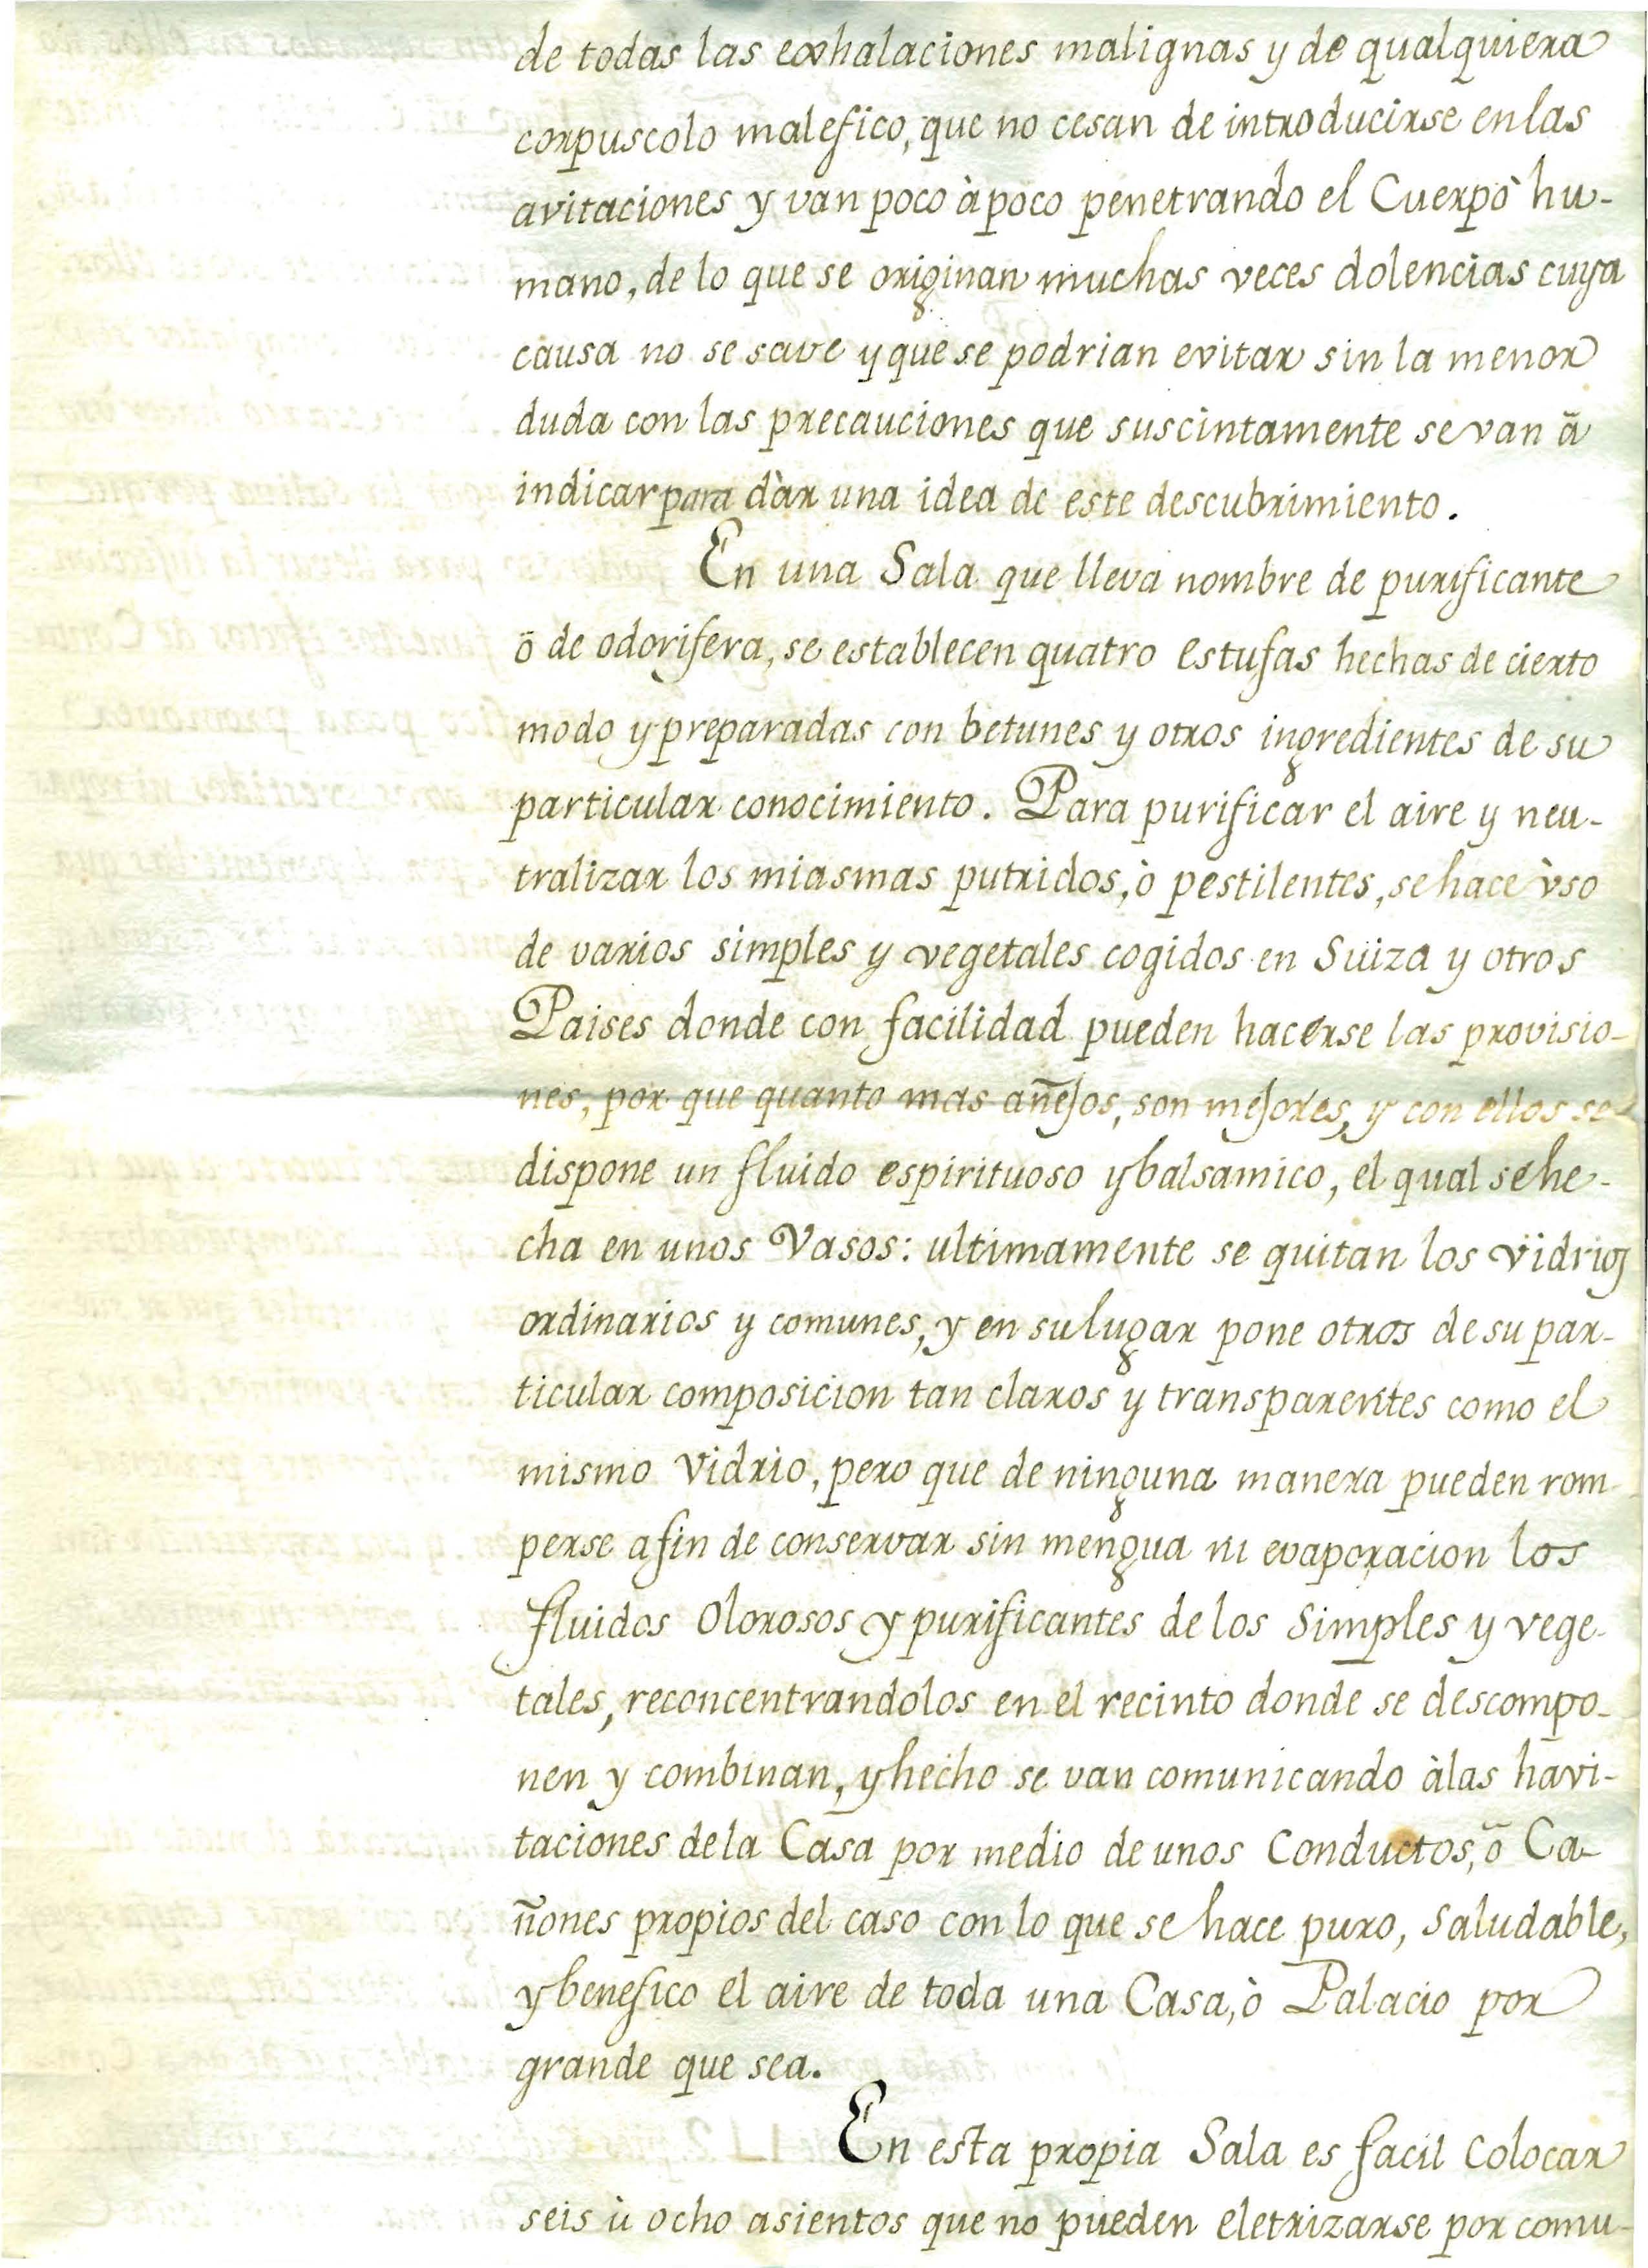 de todas las exhalaciones malignas y de qualquiera
corpuscolo malefico, que no cesan de introducirse en las
avitaciones y van poco à poco penetrando el Cuerpo hu-
mano, de lo que se originan muchas veces dolencias cuya
causa no se save y que se podrian evitar sin la menor
duda con las precauciones que suscintamente se van ã
indicar para dàr una idea de este descubrimiento.
En una Sala que lleva nombre de purificante
õ de odorifera, se establecen quatro estufas hechas de cierto
modo y preparadas con betunes y otros ingredientes de su
particular conocimiento. Para purificar el aire y neu-
tralizar los miasmas putridos, ò pestilentes, se hace ùso
de varios simples y vegetales cogidos en Suiza y otros
Paises donde con facilidad pueden hacerse las provisio-
nes, por que quanto mas añejos, son mejores, y con ellos se
dispone un fluido espirituoso y balsamico, el qual se he-
cha en unos Vasos: ultimamente se quitan los vidrios
ordinarios y comunes, y en su lugar pone otros de su par-
ticular composicion tan claros y transparentes como el
mismo Vidrio, pero que de ninguna manera pueden rom-
perse a fin de conservar sin mengua ni evaporacion los
fluidos Olorosos y purificantes de los Simples y vege-
tales, reconcentrandolos en el recinto donde se descompo-
nen y combinan, y hecho se van comunicando à las havi-
taciones de la Casa por medio de unos Conductos, õ Ca-
ñones propios del caso con lo que se hace puro, saludable,
y benefico el aire de toda una Casa, ò Palacio por
grande que sea.
En esta propia Sala es facil Colocar
seis ù ocho asientos que no pueden eletrizarse por comu-